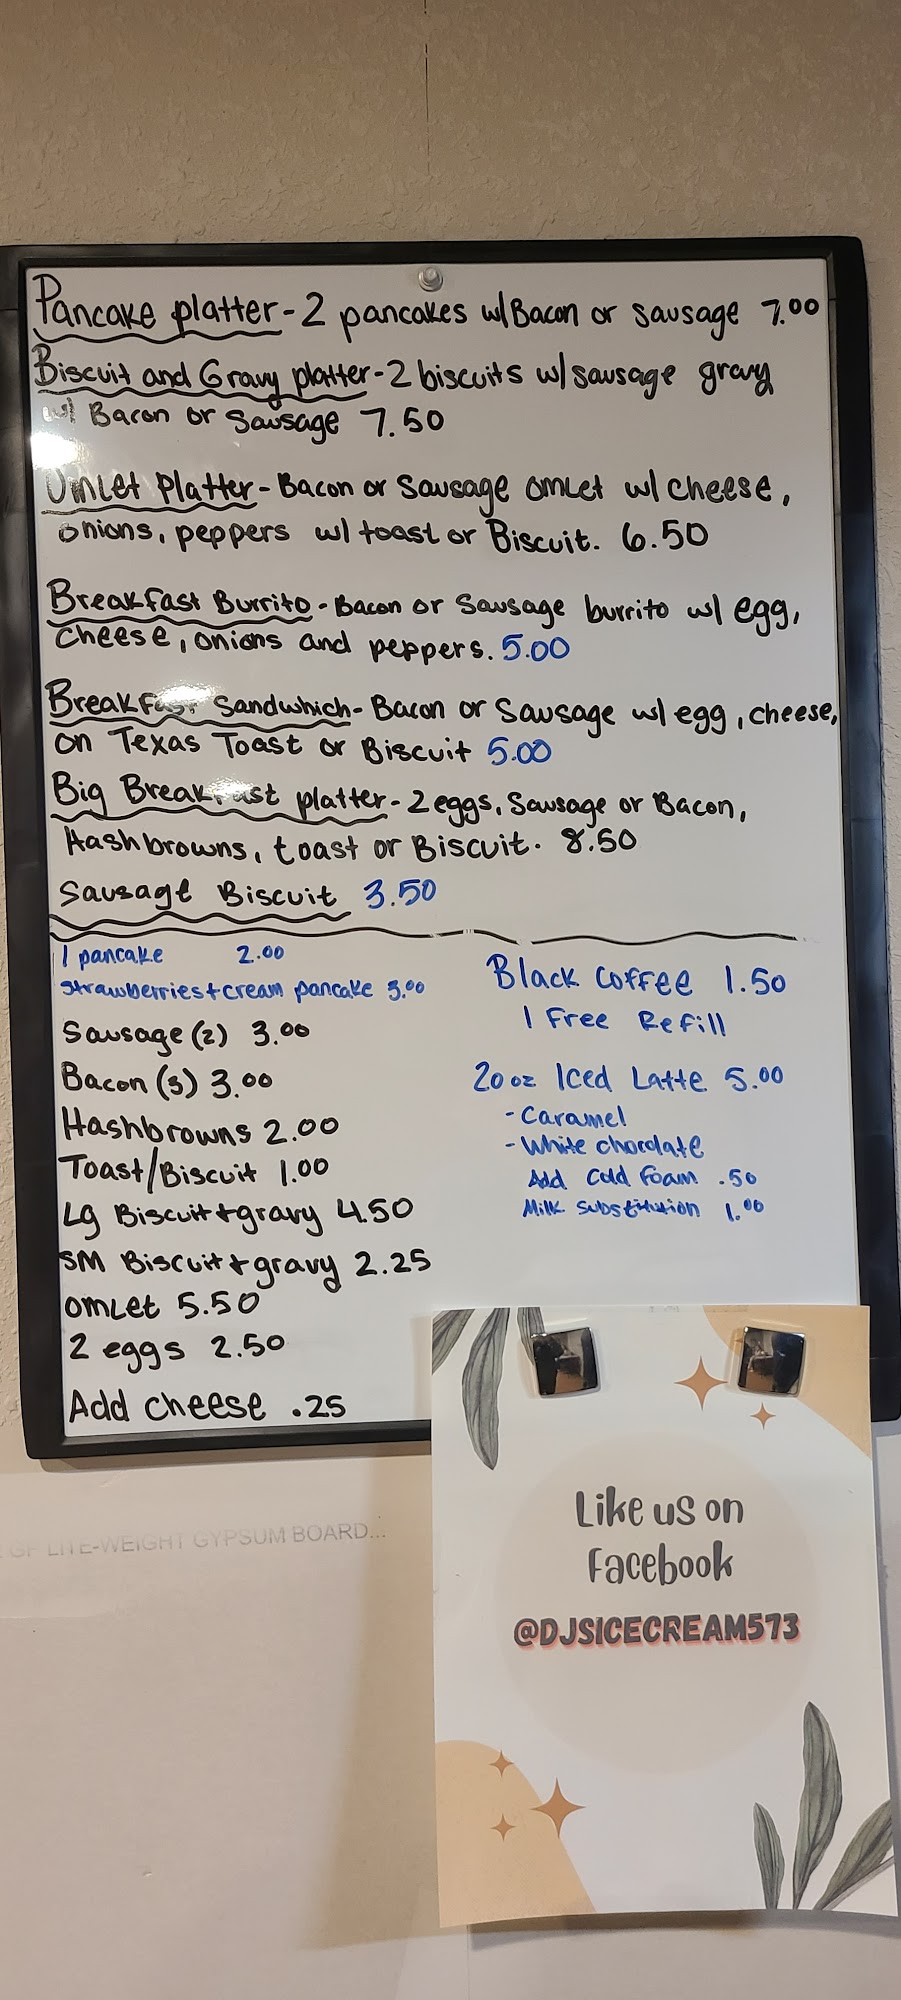 Pancake platter - 2 pancakes w/Bacon or Sausage 7.00
Biscuit and Gravy platter - 2 biscuits w/sausage gravy
w/ Bacon or Sausage 7.50
Omlet Platter - Bacon or Sausage omlet w/ cheese,
onions, peppers w/ toast or Biscuit. 6.50
Breakfast Burrito - Bacon or Sausage burrito w/ egg,
cheese, onions and peppers. 5.00
Breakfast Sandwhich - Bacon or Sausage w/ egg, cheese,
on Texas Toast or Biscuit 5.00
Big Breakfast platter - 2 eggs, Sausage or Bacon,
Hashbrowns, toast or Biscuit. 8.50
Sausage Biscuit 3.50
1 pancake 2.00
Strawberries + cream pancake 3.00
Sausage (2) 3.00
Bacon (3) 3.00
Hashbrowns 2.00
Toast/Biscuit 1.00
Lg Biscuit + gravy 4.50
SM Biscuit + gravy 2.25
omlet 5.50
2 eggs 2.50
Add cheese .25
Black Coffee 1.50
1 Free Refill
20 oz Iced Latte 5.00
- Caramel
- White chocolate
Add Cold Foam .50
Milk Substitution 1.00
Like us on
Facebook
@DJSICECREAM573
GP LITE-WEIGHT GYPSUM BOARD...